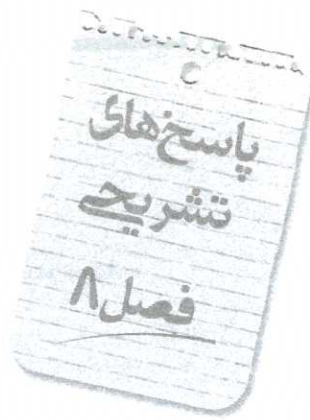 پاسخ‌های
تشریحی
فصل ۸